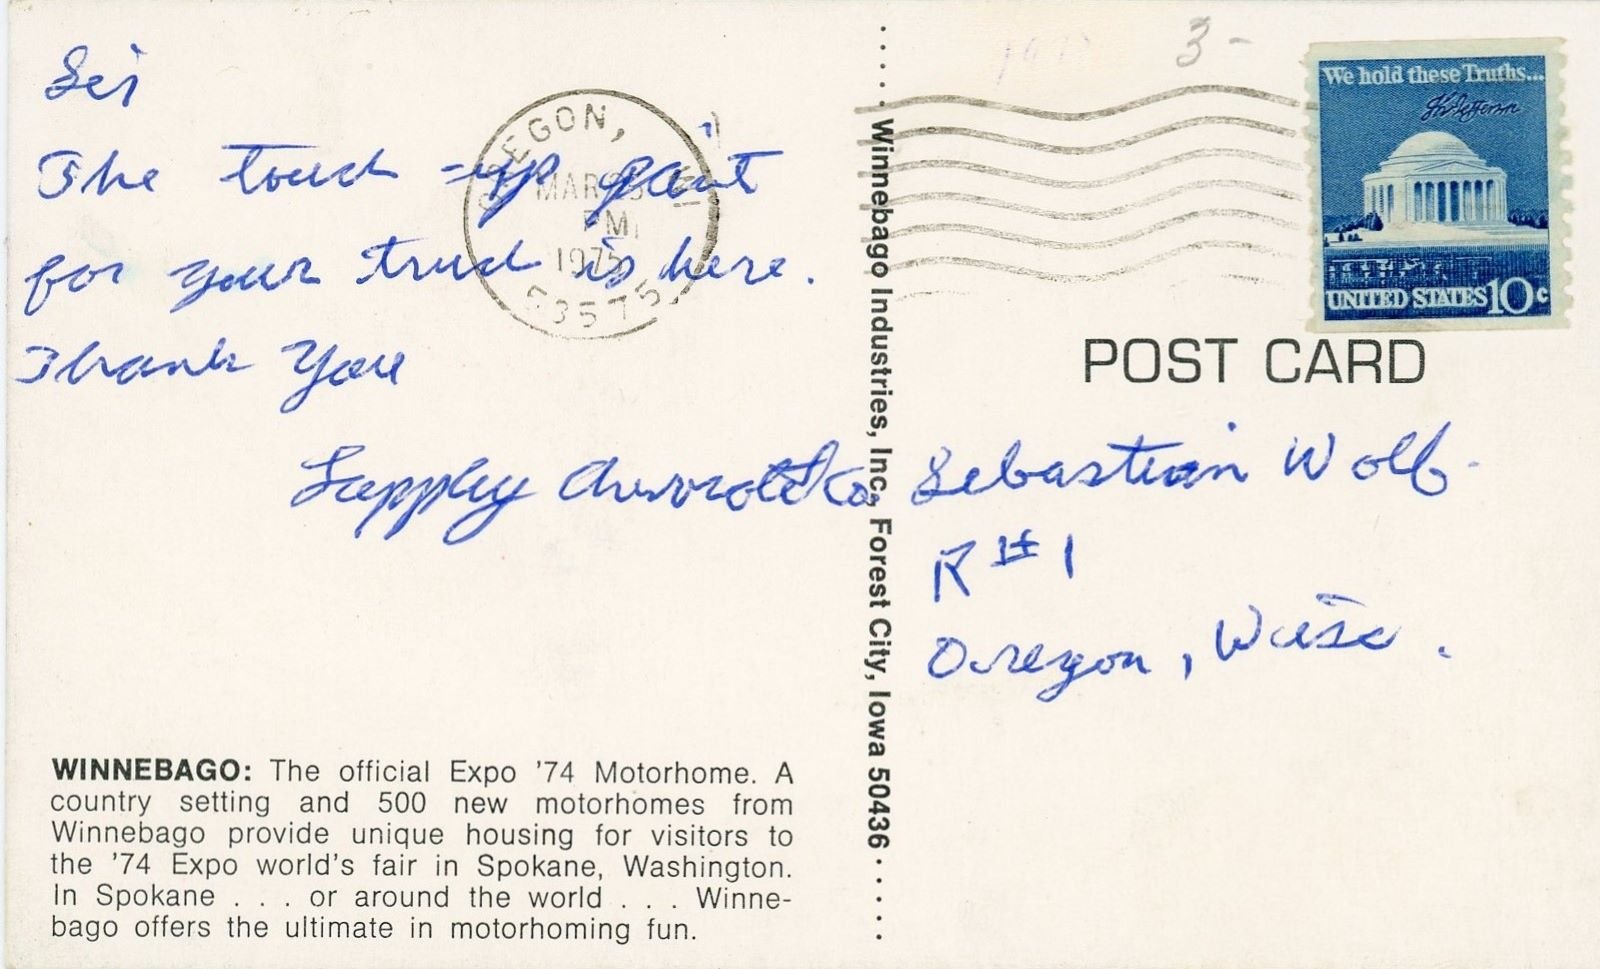 Sir
The touch-up paint
for your truck is here.
Thank You
OREGON,
MAR
PM
1975
53575
WINNEBAGO: The official Expo '74 Motorhome. A
country setting and 500 new motorhomes from
Winnebago provide unique housing for visitors to
the '74 Expo world's fair in Spokane, Washington.
In Spokane . . . or around the world . . . Winne-
bago offers the ultimate in motorhoming fun.
Winnebago Industries, Inc., Forest City, Iowa 50436
3-
We hold these Truths...
Th Jefferson
UNITED STATES 10c
POST CARD
Sebastian Wolf
R #1
Oregon, Wisc.